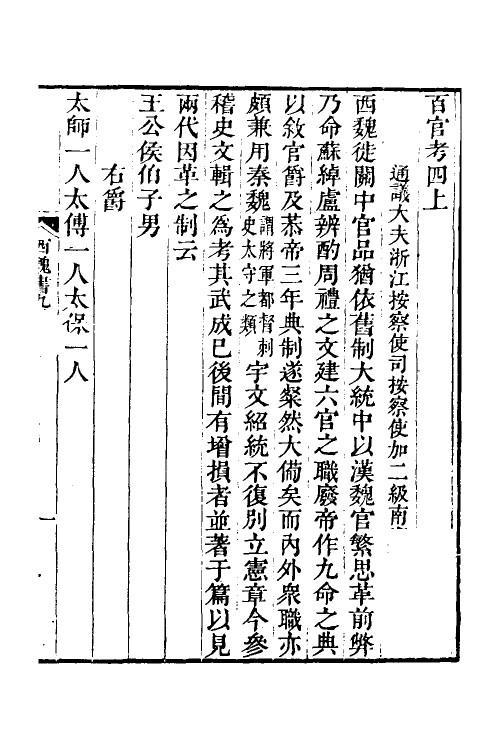 百官考四上
通議大夫浙江按察使司按察使加二級南
西魏徒關中官品猶依舊制大統中以漢魏官繁思革前弊
乃命蘇綽盧辨酌周禮之文建六官之職廢帝作九命之典
以敘官爵及恭帝三年典制遂粲然大備矣而內外衆職亦
頗兼用秦魏謂將軍都督刺史太守之類宇文紹統不復別立憲章今參
稽史文輯之爲考其武成已後間有增損者並著于篇以見
兩代因革之制云
王公侯伯子男
右爵
太師一人太傅一人太保一人
西魏書九
一